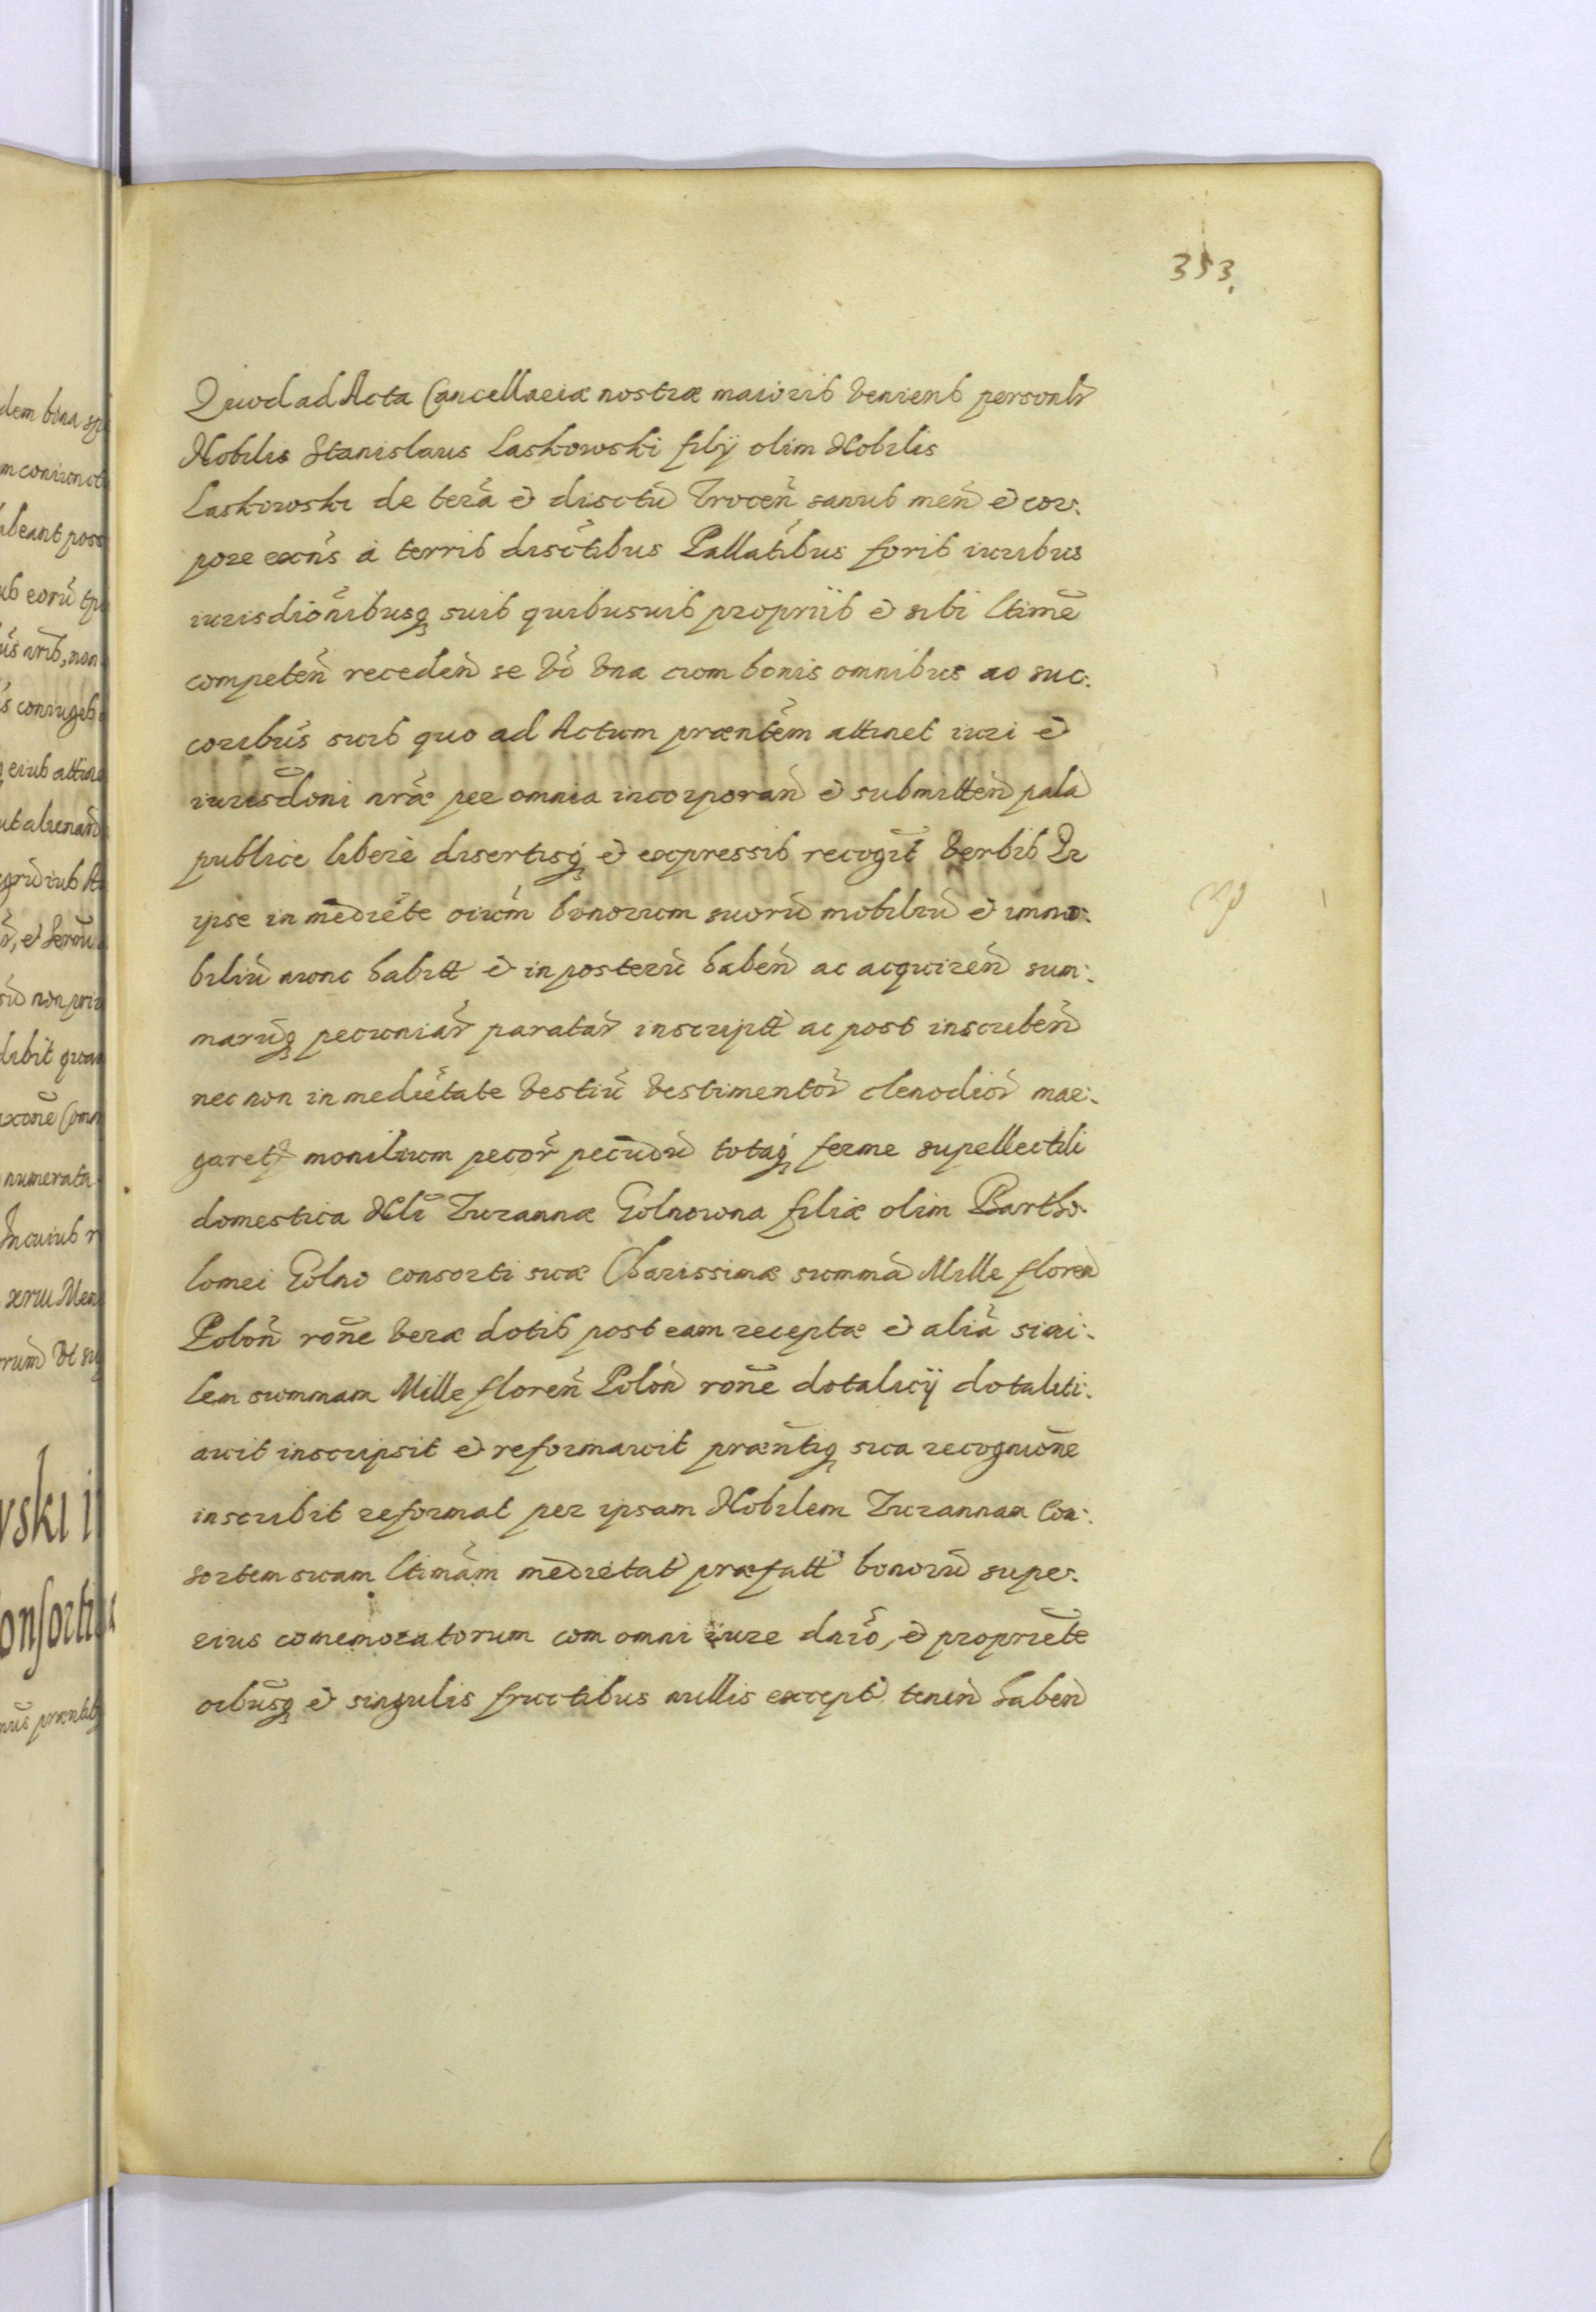 353.
Quod ad Acta Cancellariæ nostræ maioris veniens personlr
Nobilis Stanislaus Laskowski filÿ olim Nobilis
Laskowski de terã et disctũ Trocen̄ sanus men̄ et cor:
pore exn̄s à terris disctibus Pallatibus foris iuribus
iurisdiōnibusq suis quibusuis proprijs et sibi ltime
competen̄ receden̄ se vō vna cum bonis omnibus ac suc:
coribus suis quo ad Actum præntem attinet iuri et
iurisdōni nræ per omnia incorporan̄ et submitten̄ palã
publice libere disertisq et expressis recogīt verbis Qr
ipse in medietē oium bonorum suorũ mobiliũ et immo:
biliũ nunc habitt et in posterũ haben̄ ac acquiren̄ sum:
marũq pecuniar̄ paratar̄ inscriptt ac post inscriben̄
nec non in medietate vestiũ vestimentor̄ clenodior̄ mar:
garet monilium pecor̄ pecudũ totaq ferme supellectili
domestica Nlī Zuzannæ Golnowna filiæ olim Bartho:
lomei Golno consorti suæ Charissimæ summã Mille floren̄
Polon̄ rōne veræ dotis post eam receptæ et aliã simi:
lem summam Mille floren̄ Polon̄ rōne dotalicÿ dotaliti:
auit inscripsit et reformauit præntiq sua recogniōne
inscribit reformat per ipsam Nobilem Zuzannam Con:
sortem suam ltimam medietat præfatt bonorũ supe:
rius comemoratorum cum omni iure dnio, et proprietē
oibusq et singulis fructibus nullis except tenen̄ haben̄